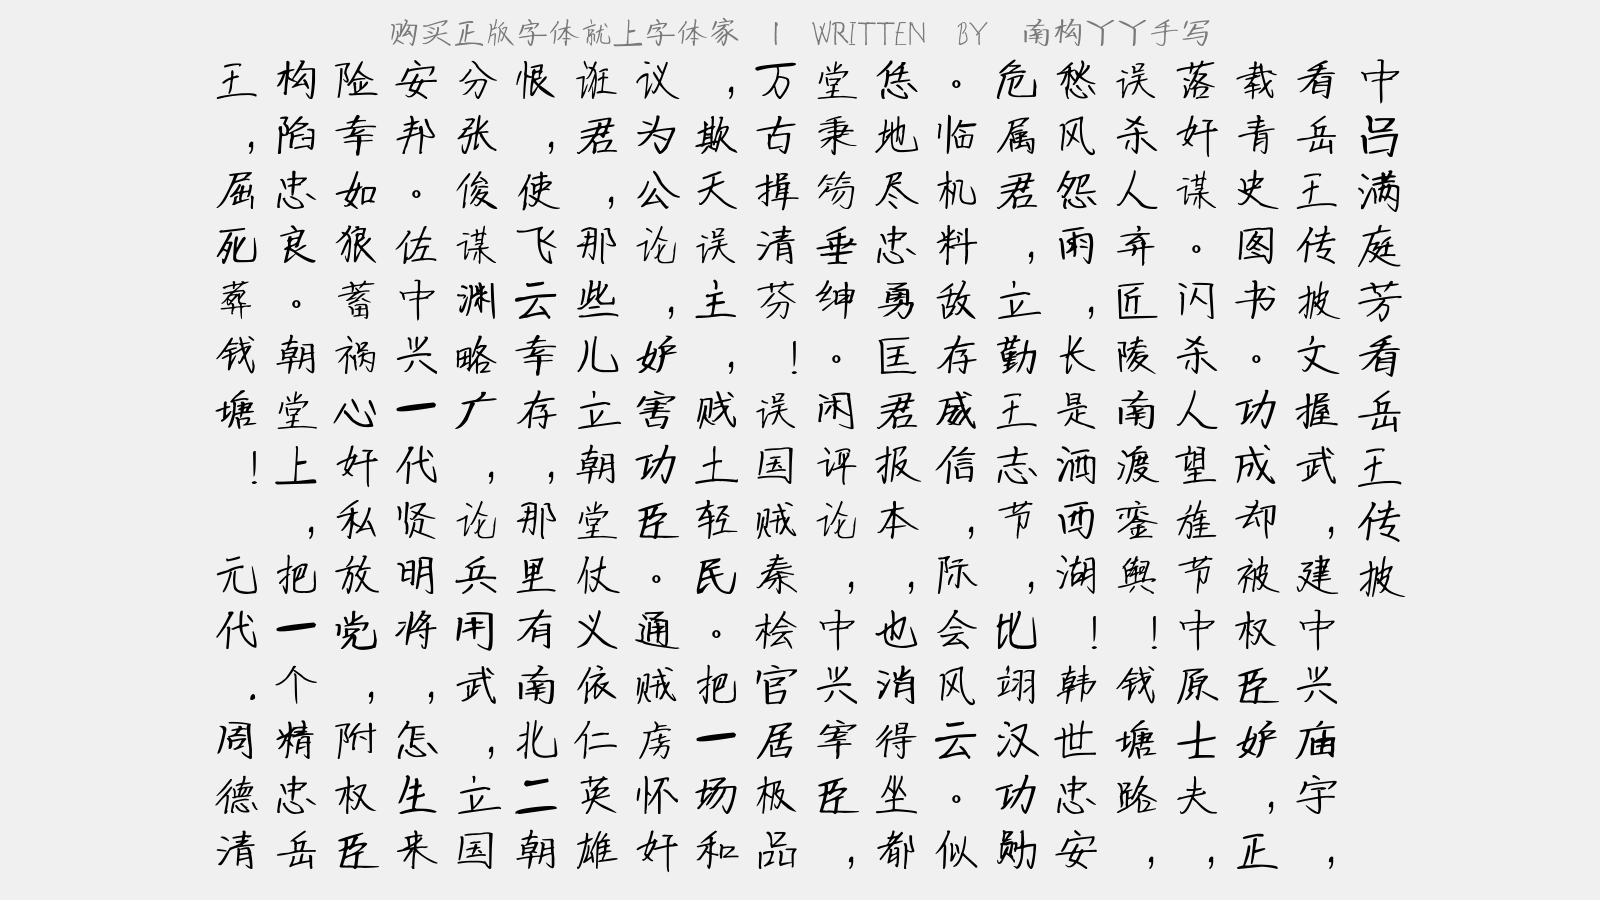 购买正版字体就上字体家 | WRITTEN BY 南构丫丫手写
中吕满庭芳看岳王传披
看岳王传披文握武，建中兴庙宇，
载青史图书。功成却被权臣妒，正
落奸谋。闪杀人望旌节中原士夫，
误杀人弃匠陵銮舆！钱塘路，
愁风怨雨，长是洒西湖！韩世忠安
危属君立，勤王志节比翊汉功勋
。临机料敌，存威信，际会风云。似
恁地尽忠勇匡君报本，也消得坐都
堂秉笏垂绅。闲评论，中兴宰臣，
万古揖清芬！误国贼秦桧官居极品
，欺天误主，贱土轻民。把一场和
议为公论，妒害功臣。通贼虏怀奸
诳君，那些儿立朝堂仗义依仁英雄
恨，使飞云幸存，那里有南北二朝
分张俊谋渊略广，论兵用武，立国
安邦。佐中兴一代贤明将，怎生来
险幸如狼。蓄祸心奸私放党，附权臣
构陷忠良。朝堂上，把一个精忠岳
王，屈死葬钱塘！元代.周德清